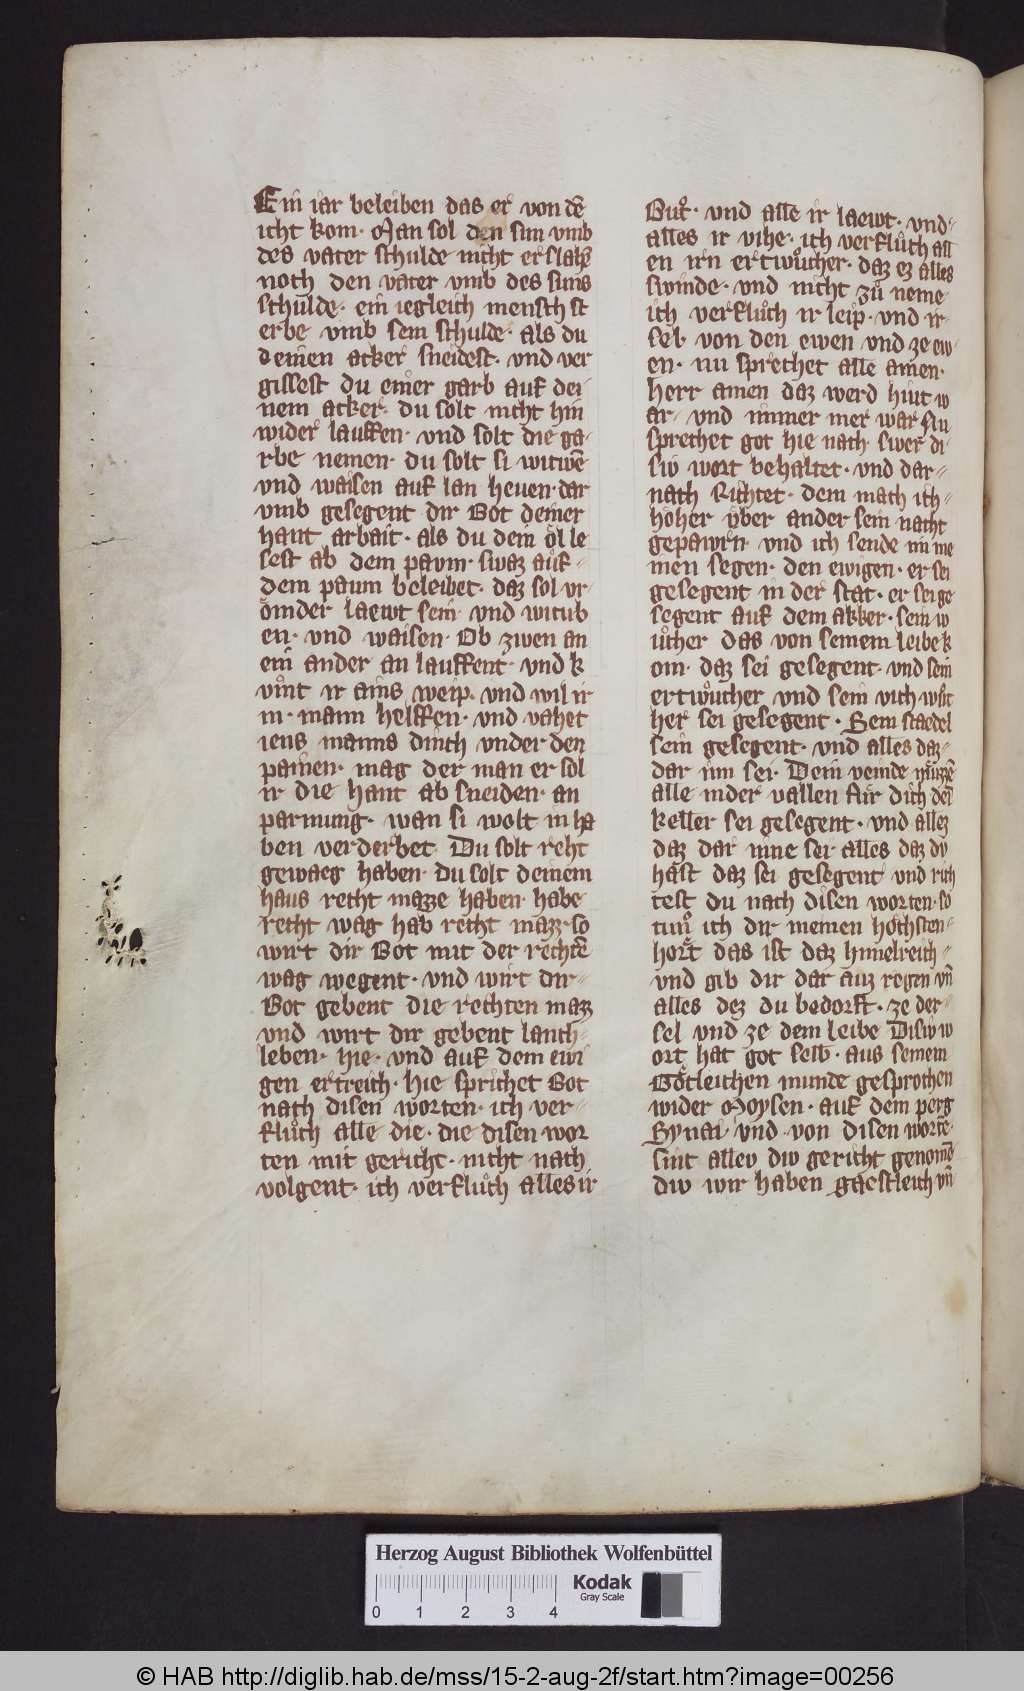 Ein iar beleiben das er von dē
icht kom. Man sol den sun vmb
des vater schulde nicht erslahē
noch den vater vmb des suns
schulde. ein iegleich mensch st
erbe vmb sein schulde. als du
deinen acker sneidest. vnd ver
gissest du einer garb auf dei
nem acker. du solt nicht hin
wider lauffen. vnd solt die ga-
rbe nemen. du solt si witwē
vnd waisen auf lan heuen. dar
vmb gesegent dir Got deiner
hant arbait. als du dein ôl le
sest ab dem pavm. swaz auf-
dem paum beleibet. daz sol vr-
ômder laewt sein. vnd witub
en. vnd waisen. Ob zwen an
ein ander an lauffent. vnd k
vmͦt ir ains weip. vnd wil ir
m. mann helffen. vnd vahet
iens manns dinch vnder den
painen. mag der man er sol
ir die hant ab sneiden. an
parmung. wan si wolt in ha
ben verderbet. Du solt reht
gewaeg haben. du solt deinem
haus recht mazze haben. habe
recht wag hab recht mazz. so
wirt dir Got mit der rechtē
wag wegent. vnd wirt dir-
Got gebent die rechten mazz
vnd wirt dir gebent lanch-
leben. hie. vnd auf dem ewi
gen ertreich. hie sprichet Got
nach disen worten. ich ver-
fluͦch alle die. die disen wor
ten mit gericht. nicht nach
volgent. ich verfluͦch alles ir
Guͦt. vnd alle ir laewt. vnd-
alles ir vihe. ich verfluͦch all
en irn ertwuͦcher. daz ez alles
swinde. vnd nicht zuͦ neme
ich verfluͦch ir leip. vnd ir-
sel. von den ewen vnd ze ew-
en. nu sprechet alle amen.
herr amen daz werd hiut w
ar. vnd immer mer war Nu
sprechet got hie nach swer di-
siv wort behaltet. vnd dar-
nach Richtet. dem mach ich-
hôher vber ander sein nacht
gepawrn. vnd ich sende im me
inen segen. den ewigen. er sei
gesegent in der stat. er sei ge
segent auf dem akker. sein w
uͦcher das von seinem leibe k
om. daz sei gesegent. vnd sein
ertwuͦcher vnd sein vich
her sei gesegent. Sein staedel
sein gesegent. vnd alles daz-
dar inn sei. Dein veinde muͤzzē
alle nider vallen fuͤr dich dein
keller sei gesegent. vnd allez
daz dar inne sei. alles daz dv
hast daz sei gesegent vnd rich
test du nach disen worten. so
tuͦn ich dir meinen hôchsten-
hort das ist daz himelreich-
vnd gib dir dar auz regen vn̄
alles dez du bedorft. ze der-
sel vnd ze dem leibe Disiv w
ort hat got selb. aus seinem
Gôtleichen munde gesprochen
wider Moysen. auf dem perg
Synai vnd von disen wortē.
sint allev div gericht genomē
div wir haben gaestleich vn̄
Herzog August Bibliothek Wolfenbüttel
Kodak
Gray Scale
0 1 2 3 4
© HAB http://diglib.hab.de/mss/15-2-aug-2f/start.htm?image=00256